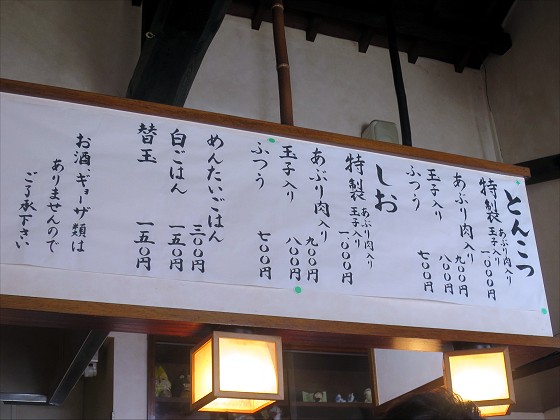 とんこつ
特製 あぶり肉入り 玉子入り 一、000円
あぶり肉入り 九00円
玉子入り 八00円
ふつう 七00円
しお
特製 あぶり肉入り 玉子入り 一、000円
あぶり肉入り 九00円
玉子入り 八00円
ふつう 七00円
めんたいごはん 三00円
白ごはん 一五0円
替玉 一五0円
お酒、ギョーザ類は
ありませんので
ご了承下さい